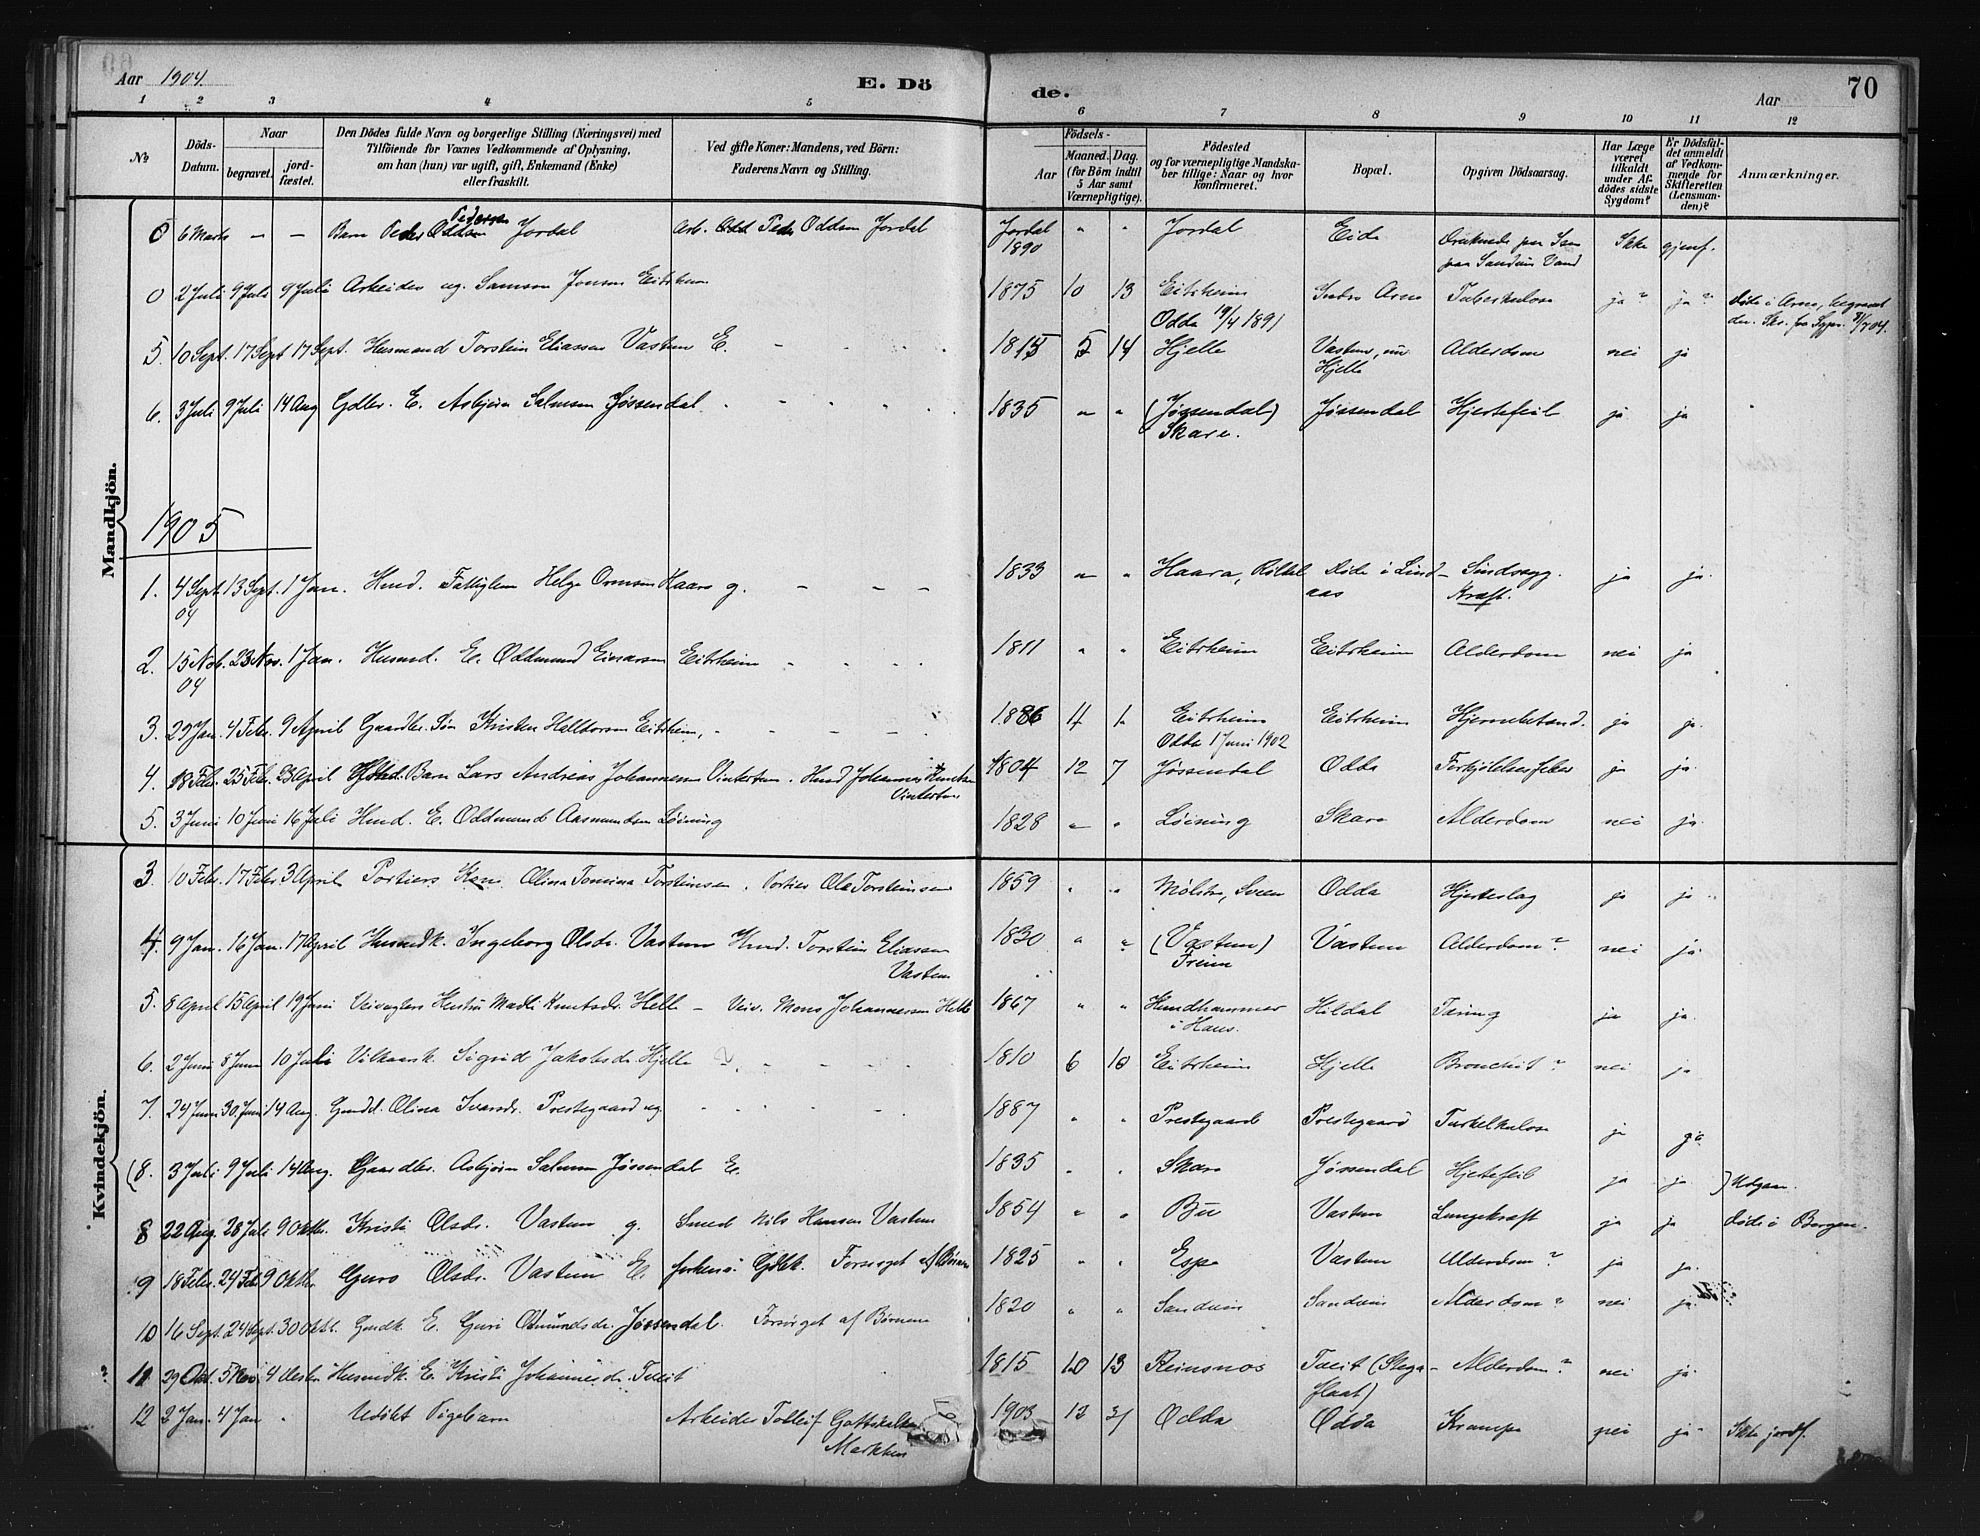 Aar 1904. E. Dö de. Aar 70
1 2 3 4 5 6 7 8 9 10 11 12
№
Döds-Datum.
Naar
begravet.
jord-fæstet.
Den Dödes fulde Navn og borgerlige Stilling (Næringsvei) med
Tilföiende for Voxnes Vedkommende af Oplysning,
om han (hun) var ugift, gift, Enkemand (Enke)
eller fraskilt.
Ved gifte Koner: Mandens, ved Börn:
Faderens Navn og Stilling.
Födsels-
Aar
Maaned. Dag.
(for Börn indtil
5 Aar samt
Værnepligtige).
Födested
og for værnepligtige Mandska-
ber tillige: Naar og hvor
konfirmeret.
Bopæl.
Opgiven Dödsaarsag.
Har Læge
været
tilkaldt
under Af-
dödes sidste
Sygdom?
Er Dödsfal-
det anmeldt
af Vedkom-
mende for
Skifteretten
(Lensman-
den)?
Anmærkninger.
Mandkjön.
0 6 Marts — — Barn Peder Pedersen Jordal Arb. Peder Oddsen Jordal 1890 " " Jordal Eide Ikke gjenf.
0 2 Juli 9 Juli 9 Juli Arbeider ug. Samson Jonsen Eitrheim 1875 10 13 Eitrheim Indre Arne Tuberkulose ja ja
Odda 19/4 1891
5. 10 Sept. 17 Sept 17 Sept. Husmand Torstein Eliassen Vastun E. 1815 5 14 Hjelle Vastun, nu Hjelle Alderdom nei ja
6. 3 Juli 9 Juli 14 Aug Gdbr. E. Asbjörn Salmsen Jøssendal 1835 " " (Jøssendal) Skare. Jøssendal Hjertefeil ja ja
1905
1. 4 Sept. 04 13 Sept. 1 Jan. Hmd. Fattiglem Helge Ormsen Haara g. 1833 " " Haara, Röldal Døde i Lindaas Sindssyg. Kræft. ja ja.
2. 15 Nov. 04 23 Nov. 1 Jan. Husmd. E. Oddmund Einarsen Eitrheim 1811 " " Eitrheim Eitrheim Alderdom nei ja
3. 29 Jan. 4 Febr. 9 April Gaardbr. Søn Kristen Helldorsen Eitrheim, 1886 4 1 Eitrheim Eitrheim Hjernebetænd. ja ja.
Odda 1 Juni 1902
4. 18 Febr. 25 Febr. 23 April Barn Lars Andreas Johannessen Vintertun. Hmd Johannes Knutsen Vintertun 1804 12 7 Jøssendal Odda ja ja
5. 3 Juni 10 Juni 16 Juli Hmd. E. Oddmund Aasmundsen Løining 1828 " " Løining Skare Alderdom nei ja
Kvindekjön.
3. 10 Febr. 17 Febr 3 April Portiers Kone Olina Tomina Torsteinsen. Portier Ole Torsteinsen 1859 " " Mølster, Odda Hjerteslag ja ja
4. 9 Jan. 16 Jan. 17 April Husmdk. Ingeborg Olsdr. Vastun Hmd. Torstein Eliassen Vastun 1830 " " (Vastun) Freim Vastun Alderdom? nei ja
5. 8 April 15 April 19 Juni Veivogters Hustru Madli Knutsdr. Helle – Veiv. Mons Johannessen Helle 1867 " " Hundhammer i Haus. Hildal Tæring ja ja.
6. 2 Juni 8 Juni 10 Juli Vilkaarsk. Sigrid Jakobsdr Hjelle 1810 6 10 Eitrheim Hjelle Bronchit? nei ja
7. 24 Juni 30. Juni 14 Aug. Gmdd. Olina Ivarsdr. Prestegaard ug 1887 " " Prestegaard Prestegaard ja ja
(8. 3 Juli 9 Juli 14 Aug. Gaardbr. Asbjörn Salmsen Jøssendal E. 1835 " " Skare Jøssendal Hjertefeil ja ja ) Udgaar.
8 22 Aug. 28 Juli 9 Oktbr. Kristi Olsdr. Vastun g. Smed Nils Hansen Vastun 1854 " " Bu Vastun Lungekræft ja ja Døde i Bergen.
9 18 Febr. 24 Feb 9 Oktbr. Guro Olsdr. Vastun E. Gdbk. Forsørget af Børnene 1825 " " Espe Vastun Alderdom? ja ja.
10 16 Sept. 24 Sept. 30 Oktb. Gmdk. E. Guri Odmundsdr. Jøssendal. Forsørget af Børnene 1820 " " Sandvin Sandvin Alderdom? nei ja
11 29 Okt. 5 Nov 4 Desbr Husmdk. E. Kristi Johannesdr. Tveit 1815 10 13 Reinsnos Tveit (Stegaflaat) Alderdom? nei ja
12 2 Jan. 4 Jan " Udøbt Pigebarn Arbeider Tolleif Gottskalksen 1903 12 31 Odda Odda Krampe nei ja Ikke jordf.